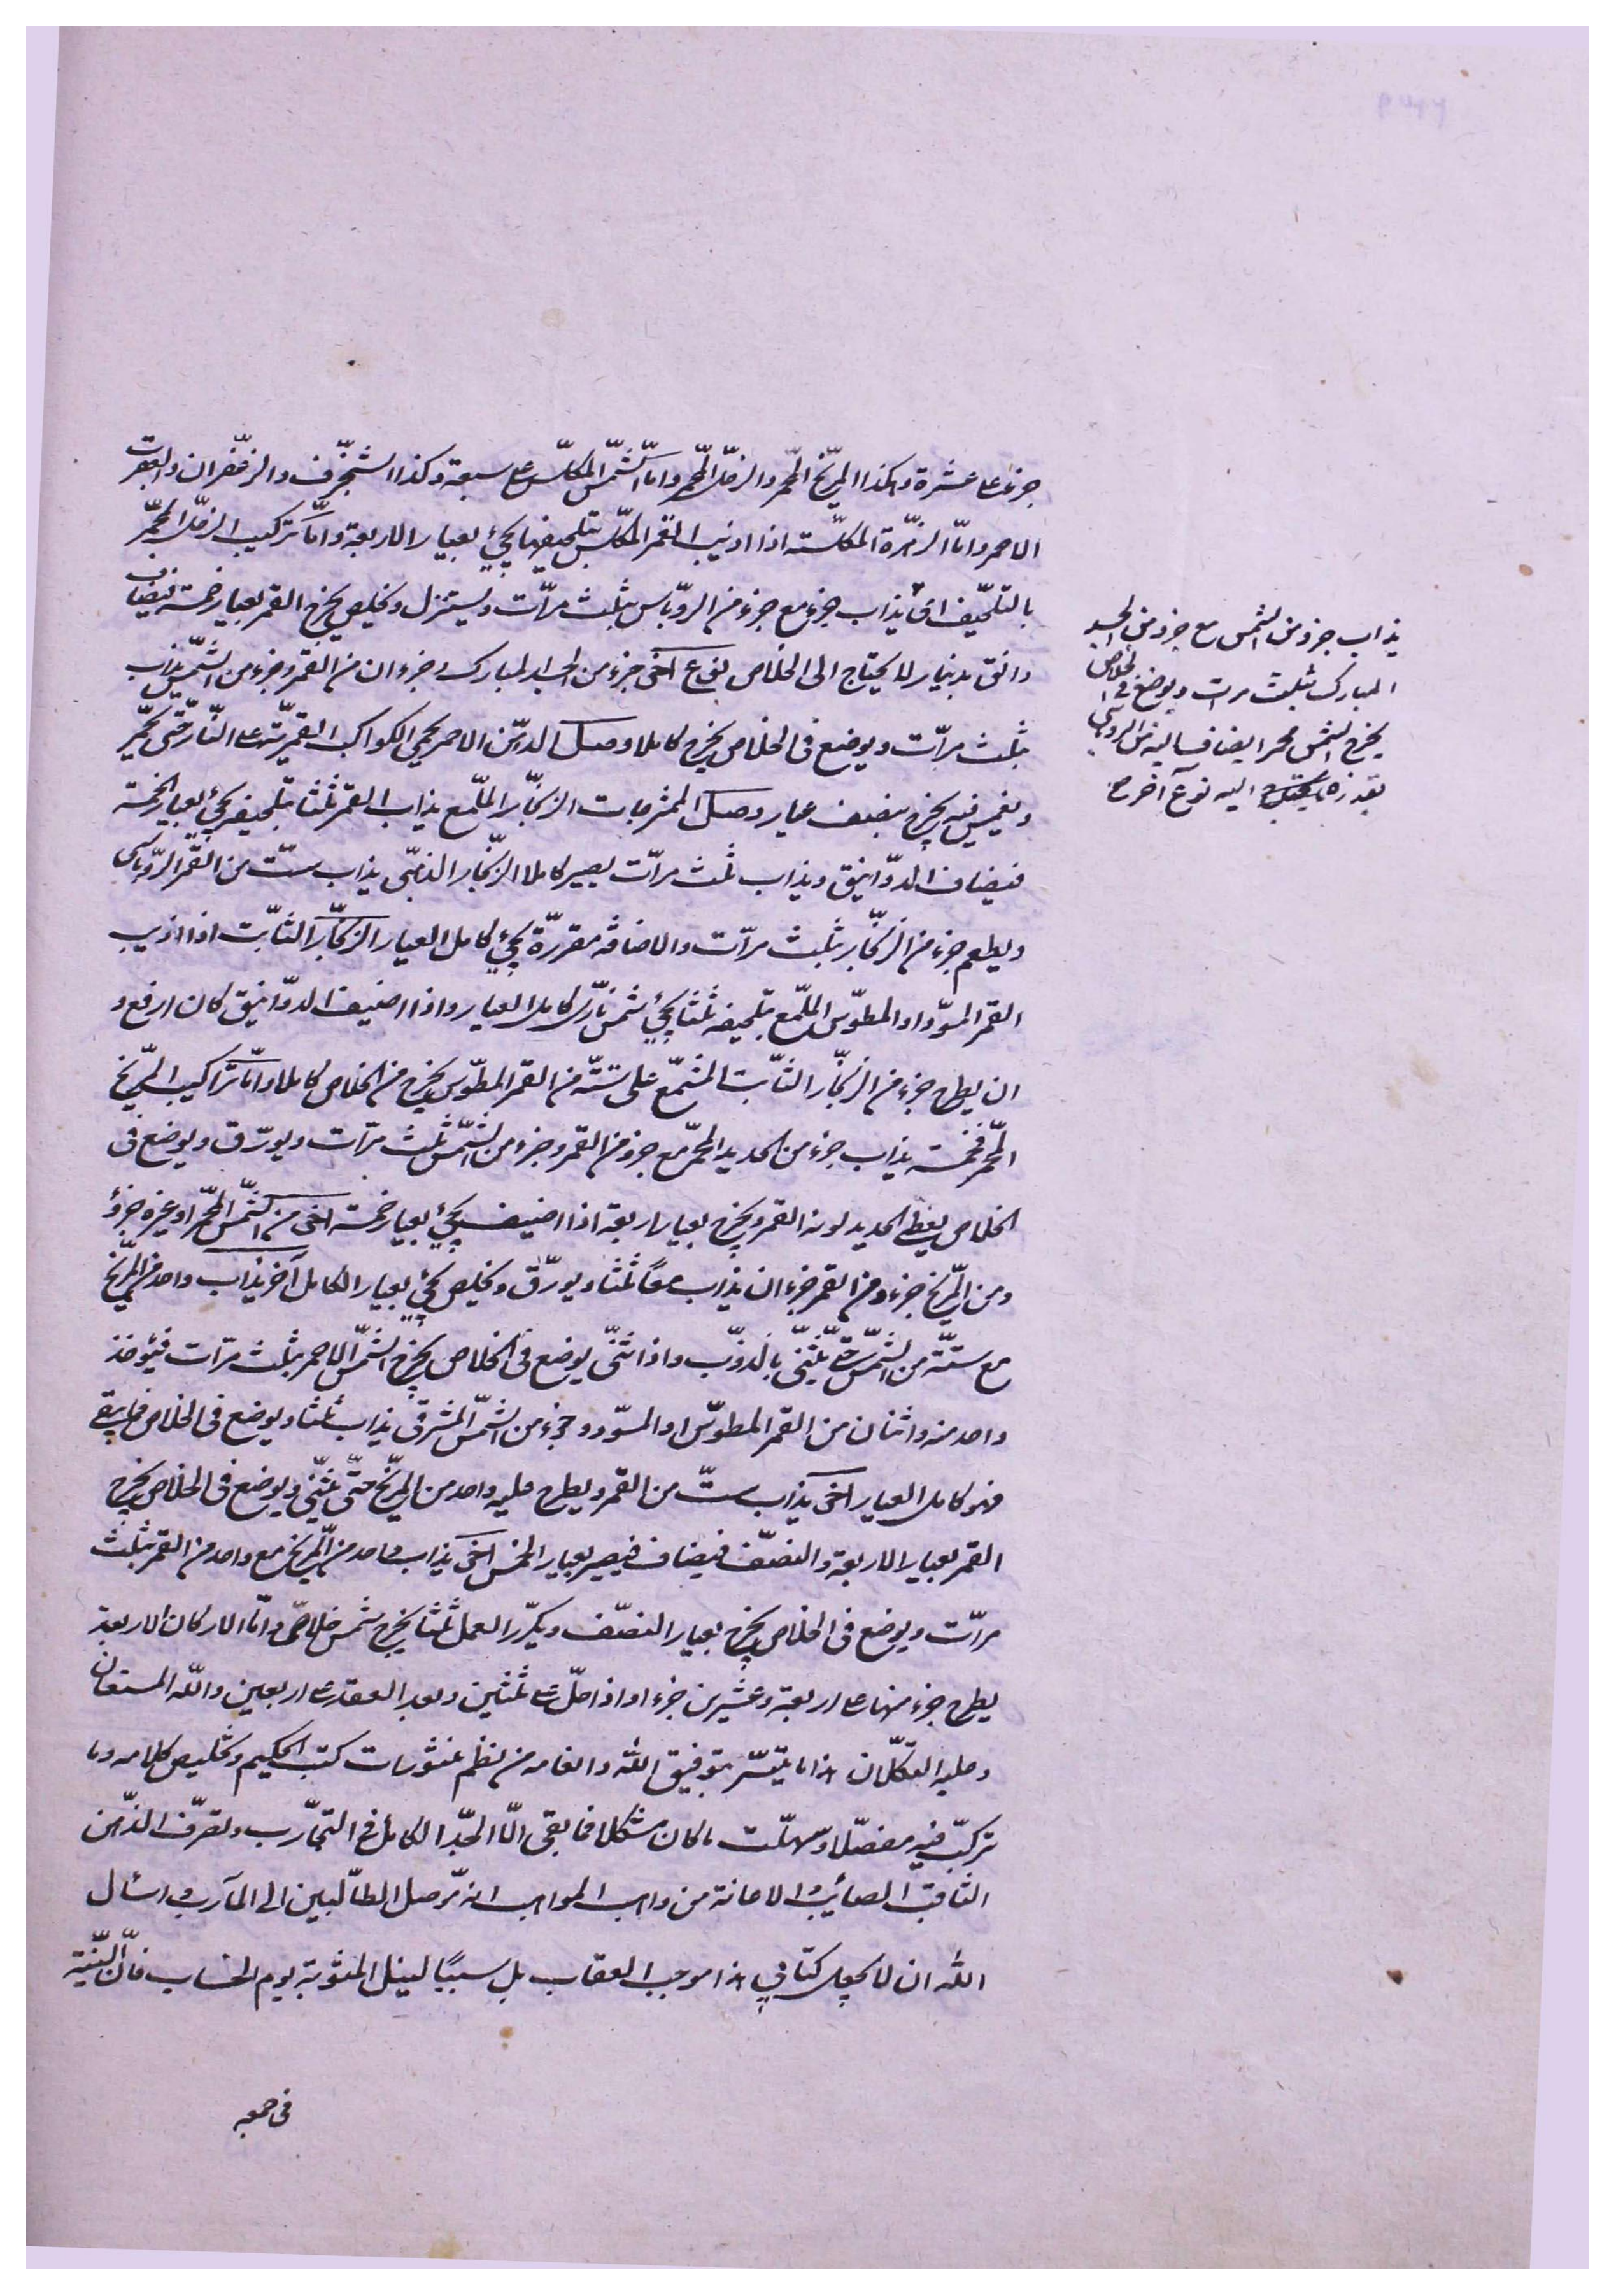 جزء على عشرة وهكذا المريخ المحمر والزحل المحمر واما الشمس المكلس على سبعة وكذا الشنجرف والزعفران والعقرب
الاحمر واما الزهرة المكلسة اذا اذيب القمر المكلس بتلحيفها يجيء بعيار الاربعة واما تركيب الزحل المحمر
بالتلحيف اى يذاب جزء مع جزء من الروباس بثلث مرات ويستنزل ويخلص يخرج القمر بعيار خمسة فيضاف
دانق بدينار لا يحتاج الى الخلاص نوع اخى جزء من الجسد المبارك وجزءان من القمر وجزء من الشمس يذاب
بثلث مرات ويوضع فى الخلاص يخرج كاملا وصل الدهن الاحمر يحمى الكواكب القمرية على النار حتى يحمر
ويغمس فيه يخرج بنصف عيار وصل الممزجات الزنجار الملمع يذاب القمر ثلثا بتلحيفه يجيء بعيار الخمسة
فيضاف الدوانيق ويذاب ثلث مرات يصير كاملا الزنجار الذهبى يذاب ست من القمر الروباسى
ويطعم جزء من الزنجار بثلث مرات والاضافة مقررة يجيء كامل العيار الزنجار الثابت اذا اذيب
القمر المسود او المطوس الملمع بتلحيفه ثلثا يجيء شمس نارى كامل العيار واذا اضيف الدوانيق كان ارفع و
ان يطرح جزء من الزنجار الثابت المشمع على ستة من القمر المطوس يخرج من الخلاص كاملا واما تراكيب المريخ
المحمر فخمسة يذاب جزء من الحديد المحمر مع جزء من القمر وجزء من الشمس ثلث مرات ويورق ويوضع فى
الخلاص يعطى الحديد لونه القمر ويخرج بعيار اربعة اذا اضيف يجيء بعيار خمسة اخى من الشمس المحمر او غيره جزؤ
ومن المريخ جزء ومن القمر جزءان يذاب معا ثلثا ويورق ويخلص يجيء بعيار الكامل آخر يذاب واحد من المريخ
مع ستة من الشمس حتى يثنى بالذوب واذا ثنى يوضع فى الخلاص يخرج الشمس الاحمر بثلث مرات فيؤخذ
واحد منه واثنان من القمر المطوس او المسود وجزء من الشمس المشرقى يذاب ثلثا ويوضع فى الخلاص فما يبقى
فهو كامل العيار اخى يذاب ست من القمر ويطرح عليه واحد من المريخ حتى يثنى ويوضع فى الخلاص يخرج
القمر بعيار الاربعة والنصف فيضاف فيصير بعيار الخمس اخى يذاب واحد من المريخ مع واحد من القمر بثلث
مرات ويوضع فى الخلاص يخرج بعيار النصف ويكرر العمل ثلثا يخرج شمس خلاصى واما الاركان الاربعة
يطرح جزء منها على اربعة وعشرين جزء او اذا حل على ثلثين وبعد العقد على اربعين والله المستعان
وعليه التكلان هذا ما يتيسر بتوفيق الله وانعامه من نظم منثورات كتب الحكيم وتخليص كلامه وما
تركب فيه مفصلا وسهلت ما كان مشكلا فما بقى الا الجد الكامل فى التجارب وتصرف الذهن
الثاقب الصائب والاعانة من واهب المواهب انه موصل الطالبين الى المآرب واسئال
الله ان لا يجعل كتابى هذا موجب العقاب بل سببا لينل المثوبة يوم الحساب فان النية
فى جمعه
يذاب جزء من الشمس مع جزء من الجسد
المبارك بثلث مرات ويوضع فى الخلاص
يخرج الشمس محمرا يضاف اليه من الروباس
بقدر ما يحتاج اليه نوع آخر